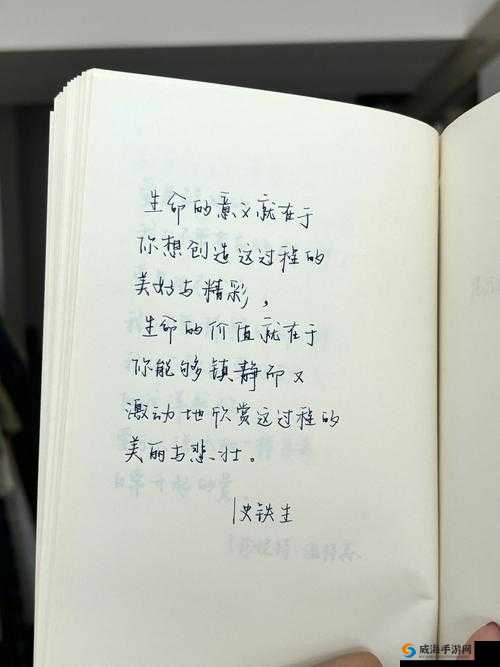 生命的意义就在于
你想创造这过程的
美好与精彩，
生命的价值就在于
你能够镇静而又
激动地欣赏这过程的
美丽与悲壮。
|史铁生
威海手游网